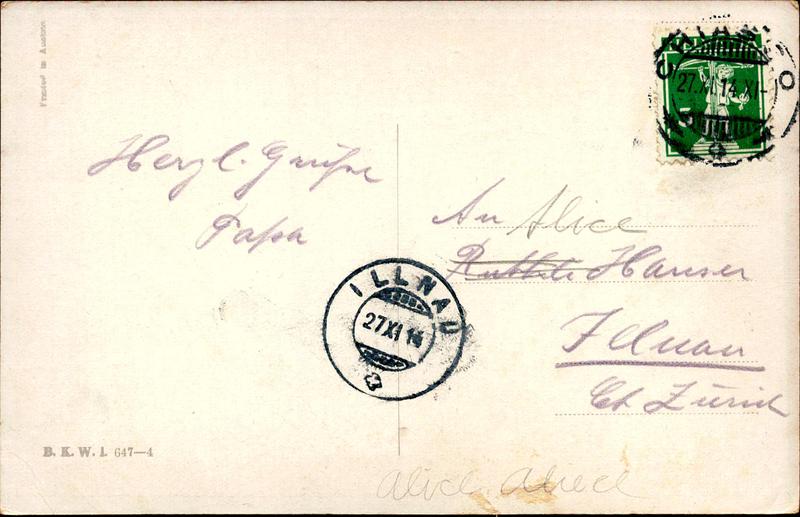 Printed in Austria
27.XI.14.XI-
Herzl. Grüße
Papa
An Alice
Hauser
Illnau
Ct. Zürich
ILLNAU
27 XI 14
B. K. W. I. 647—4
alice aliece